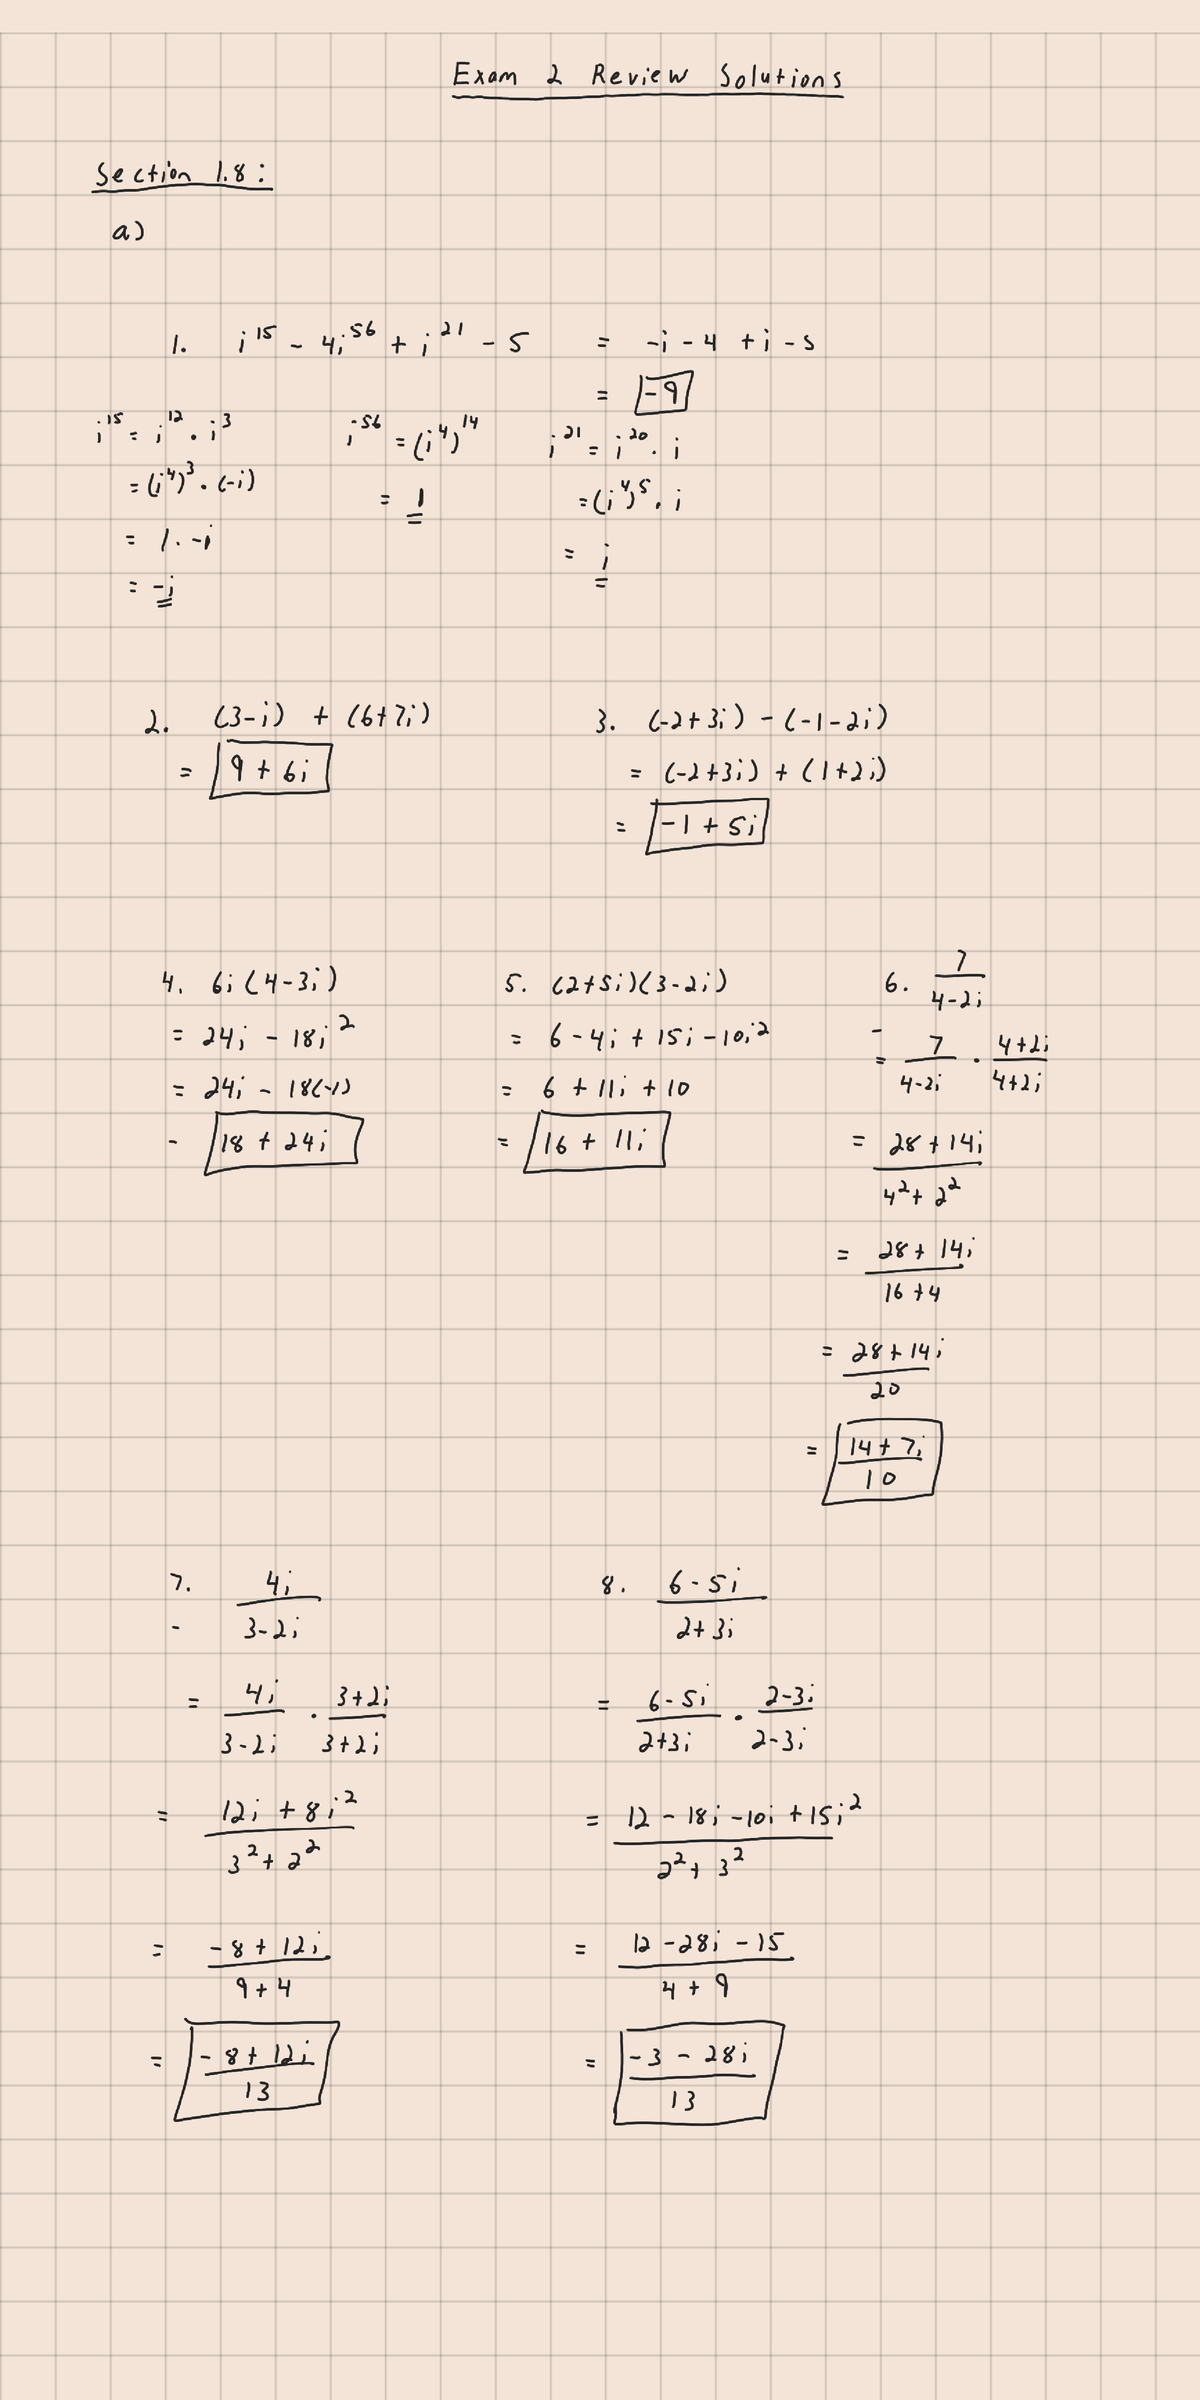 Exam 2 Review Solutions
Section 1.8:
a)
1. i^15 - 4i^56 + i^21 - 5 = -i - 4 + i - 5
= -9
i^15 = i^12 · i^3
= (i^4)^3 · (-i)
= 1 · -i
= -i
i^56 = (i^4)^14
= 1
i^21 = i^20 · i
= (i^4)^5 · i
= i
2. (3-i) + (6+7i)
= 9 + 6i
3. (-2+3i) - (-1-2i)
= (-2+3i) + (1+2i)
= -1 + 5i
4. 6i(4-3i)
= 24i - 18i^2
= 24i - 18(-1)
- 18 + 24i
5. (2+5i)(3-2i)
= 6 - 4i + 15i - 10i^2
= 6 + 11i + 10
= 16 + 11i
6. 7/(4-2i)
= 7/(4-2i) · (4+2i)/(4+2i)
= (28 + 14i)/(4^2 + 2^2)
= (28 + 14i)/(16 + 4)
= (28 + 14i)/20
= (14 + 7i)/10
7. 4i/(3-2i)
= 4i/(3-2i) · (3+2i)/(3+2i)
= (12i + 8i^2)/(3^2 + 2^2)
= (-8 + 12i)/(9 + 4)
= (-8 + 12i)/13
8. (6-5i)/(2+3i)
= (6-5i)/(2+3i) · (2-3i)/(2-3i)
= (12 - 18i - 10i + 15i^2)/(2^2 + 3^2)
= (12 - 28i - 15)/(4 + 9)
= (-3 - 28i)/13